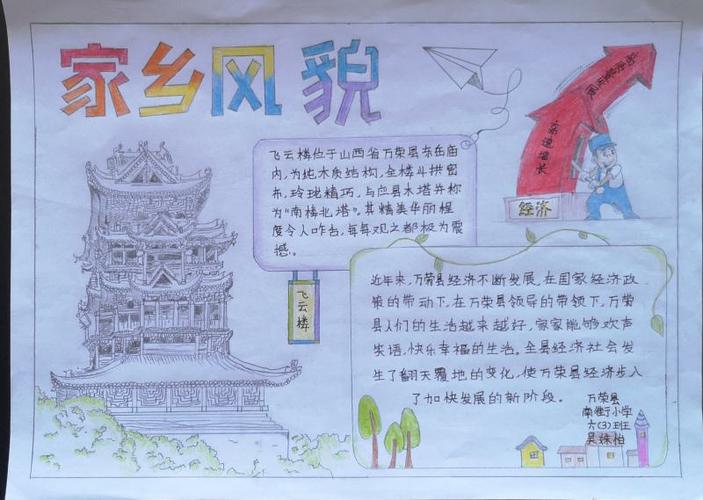 家乡风貌
飞云楼位于山西省万荣县东岳庙
内,为纯木质结构,全楼斗拱密
布,玲珑精巧,与应县木塔并称
为"南楼北塔"。其精美华丽程
度令人咋舌,每每观之都极为震
撼。
飞云楼
急速增长
经济
近年来,万荣县经济不断发展,在国家经济政
策的带动下,在万荣县领导的带领下,万荣
县人们的生活越来越好,家家能够欢声
笑语,快乐幸福的生活。全县经济社会发
生了翻天覆地的变化,使万荣县经济步入
了加快发展的新阶段。
万荣县
南牛池小学
六(3)班